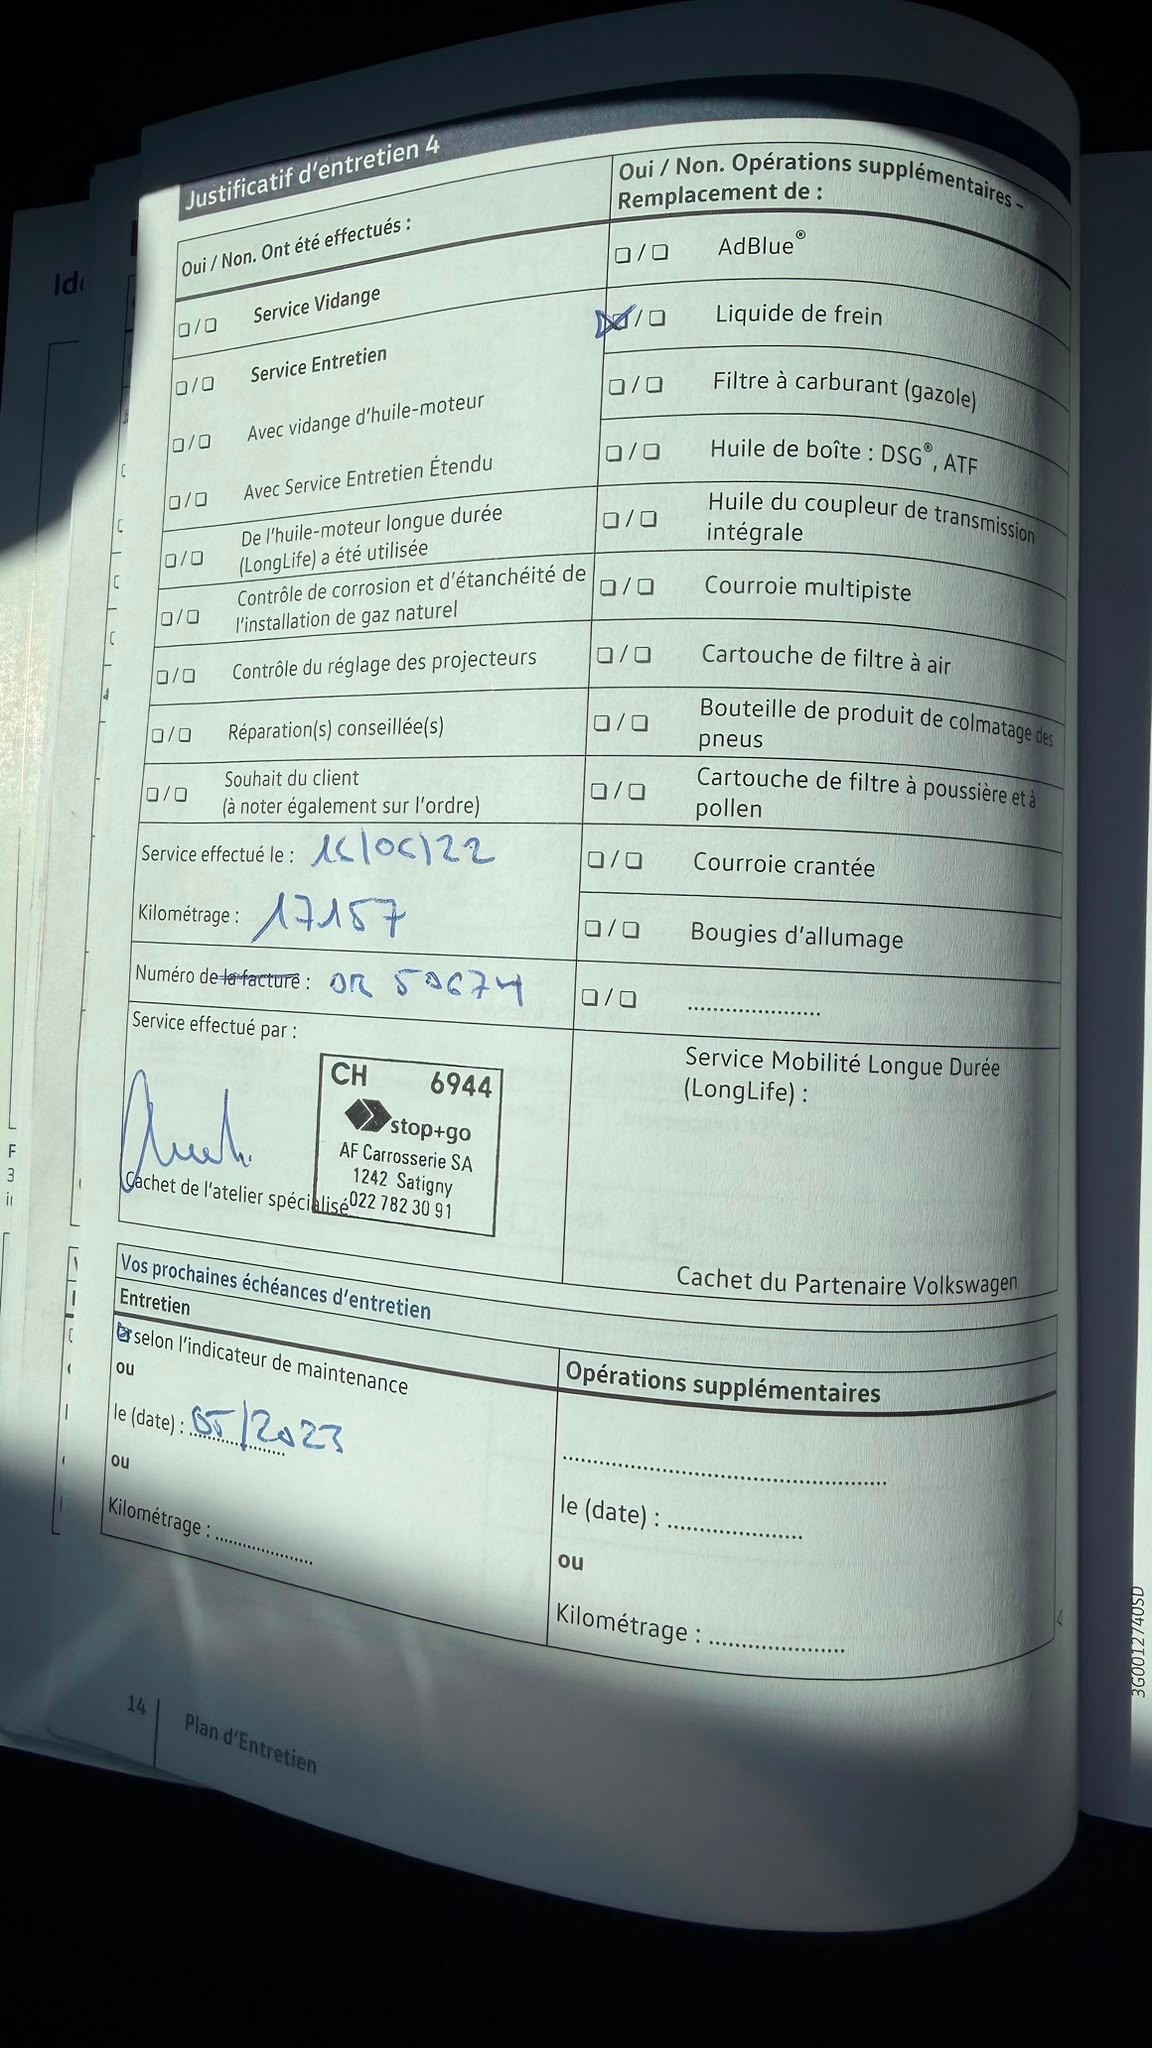 Justificatif d'entretien 4
Oui / Non. Ont été effectués :
❏ / ❏ Service Vidange
❏ / ❏ Service Entretien
❏ / ❏ Avec vidange d'huile-moteur
❏ / ❏ Avec Service Entretien Étendu
❏ / ❏ De l'huile-moteur longue durée
(LongLife) a été utilisée
❏ / ❏ Contrôle de corrosion et d'étanchéité de
l'installation de gaz naturel
❏ / ❏ Contrôle du réglage des projecteurs
❏ / ❏ Réparation(s) conseillée(s)
❏ / ❏ Souhait du client
(à noter également sur l'ordre)
Service effectué le : 16/06/22
Kilométrage : 17157
Numéro de la facture : OR 50674
Service effectué par :
CH 6944
stop+go
AF Carrosserie SA
1242 Satigny
022 782 30 91
Cachet de l'atelier spécialisé
Oui / Non. Opérations supplémentaires –
Remplacement de :
❏ / ❏ AdBlue®
☒ / ❏ Liquide de frein
❏ / ❏ Filtre à carburant (gazole)
❏ / ❏ Huile de boîte : DSG®, ATF
❏ / ❏ Huile du coupleur de transmission
intégrale
❏ / ❏ Courroie multipiste
❏ / ❏ Cartouche de filtre à air
❏ / ❏ Bouteille de produit de colmatage des
pneus
❏ / ❏ Cartouche de filtre à poussière et à
pollen
❏ / ❏ Courroie crantée
❏ / ❏ Bougies d'allumage
❏ / ❏ .....................
Service Mobilité Longue Durée
(LongLife) :
Cachet du Partenaire Volkswagen
Vos prochaines échéances d'entretien
Entretien
☒ selon l'indicateur de maintenance
ou
le (date) : 05/2023
ou
Kilométrage : .....................
Opérations supplémentaires
..................................................
le (date) : .....................
ou
Kilométrage : .....................
14 Plan d'Entretien
3G0012740SD